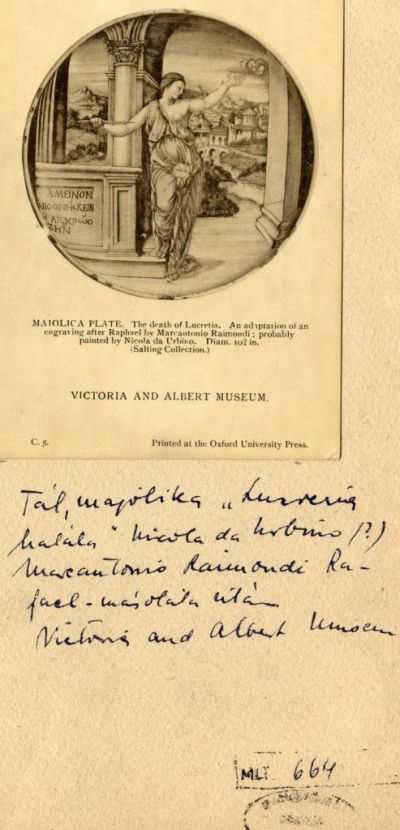 ΑΜΕΙΝΟΝ
ΑΠΟΘΝΗCΚΕΙΝ
Η ΑΙCΧΡѠC
ΖΗΝ
MAIOLICA PLATE. The death of Lucretia. An adaptation of an
engraving after Raphael by Marcantonio Raimondi; probably
painted by Nicola da Urbino. Diam. 10¾ in.
(Salting Collection.)
VICTORIA AND ALBERT MUSEUM.
C. 5. Printed at the Oxford University Press.
Tál, majolika „Lucrezia
halála" Nicola da Urbino (?)
Marcantonio Raimondi Ra-
fael-másolata után
Victoria and Albert Museum
MLT 664